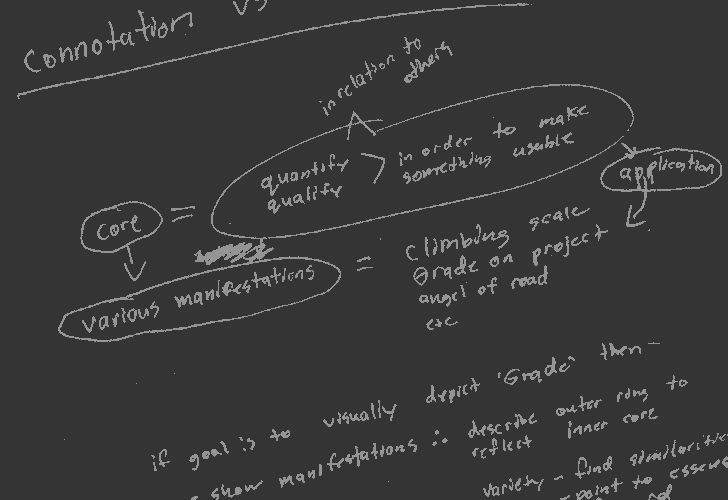 Connotation vs
in relation to
others
quantify
qualify
in order to make
something usable
application
core =
various manifestations =
climbing scale
Grade on project
angel of road
etc
if goal is to visually depict 'Grade' then —
show manifestations ∴ describe outer ring to
reflect inner core
variety - find similarities
point to essence